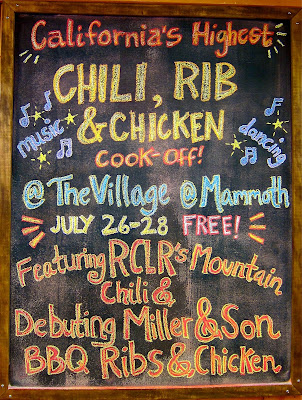 California's Highest
CHILI, RIB
& CHICKEN
music
dancing
COOK-OFF!
@ The Village @ Mammoth
JULY 26-28 FREE!
Featuring RCLR's Mountain
Chili &
Debuting Miller & Son
BBQ Ribs & Chicken